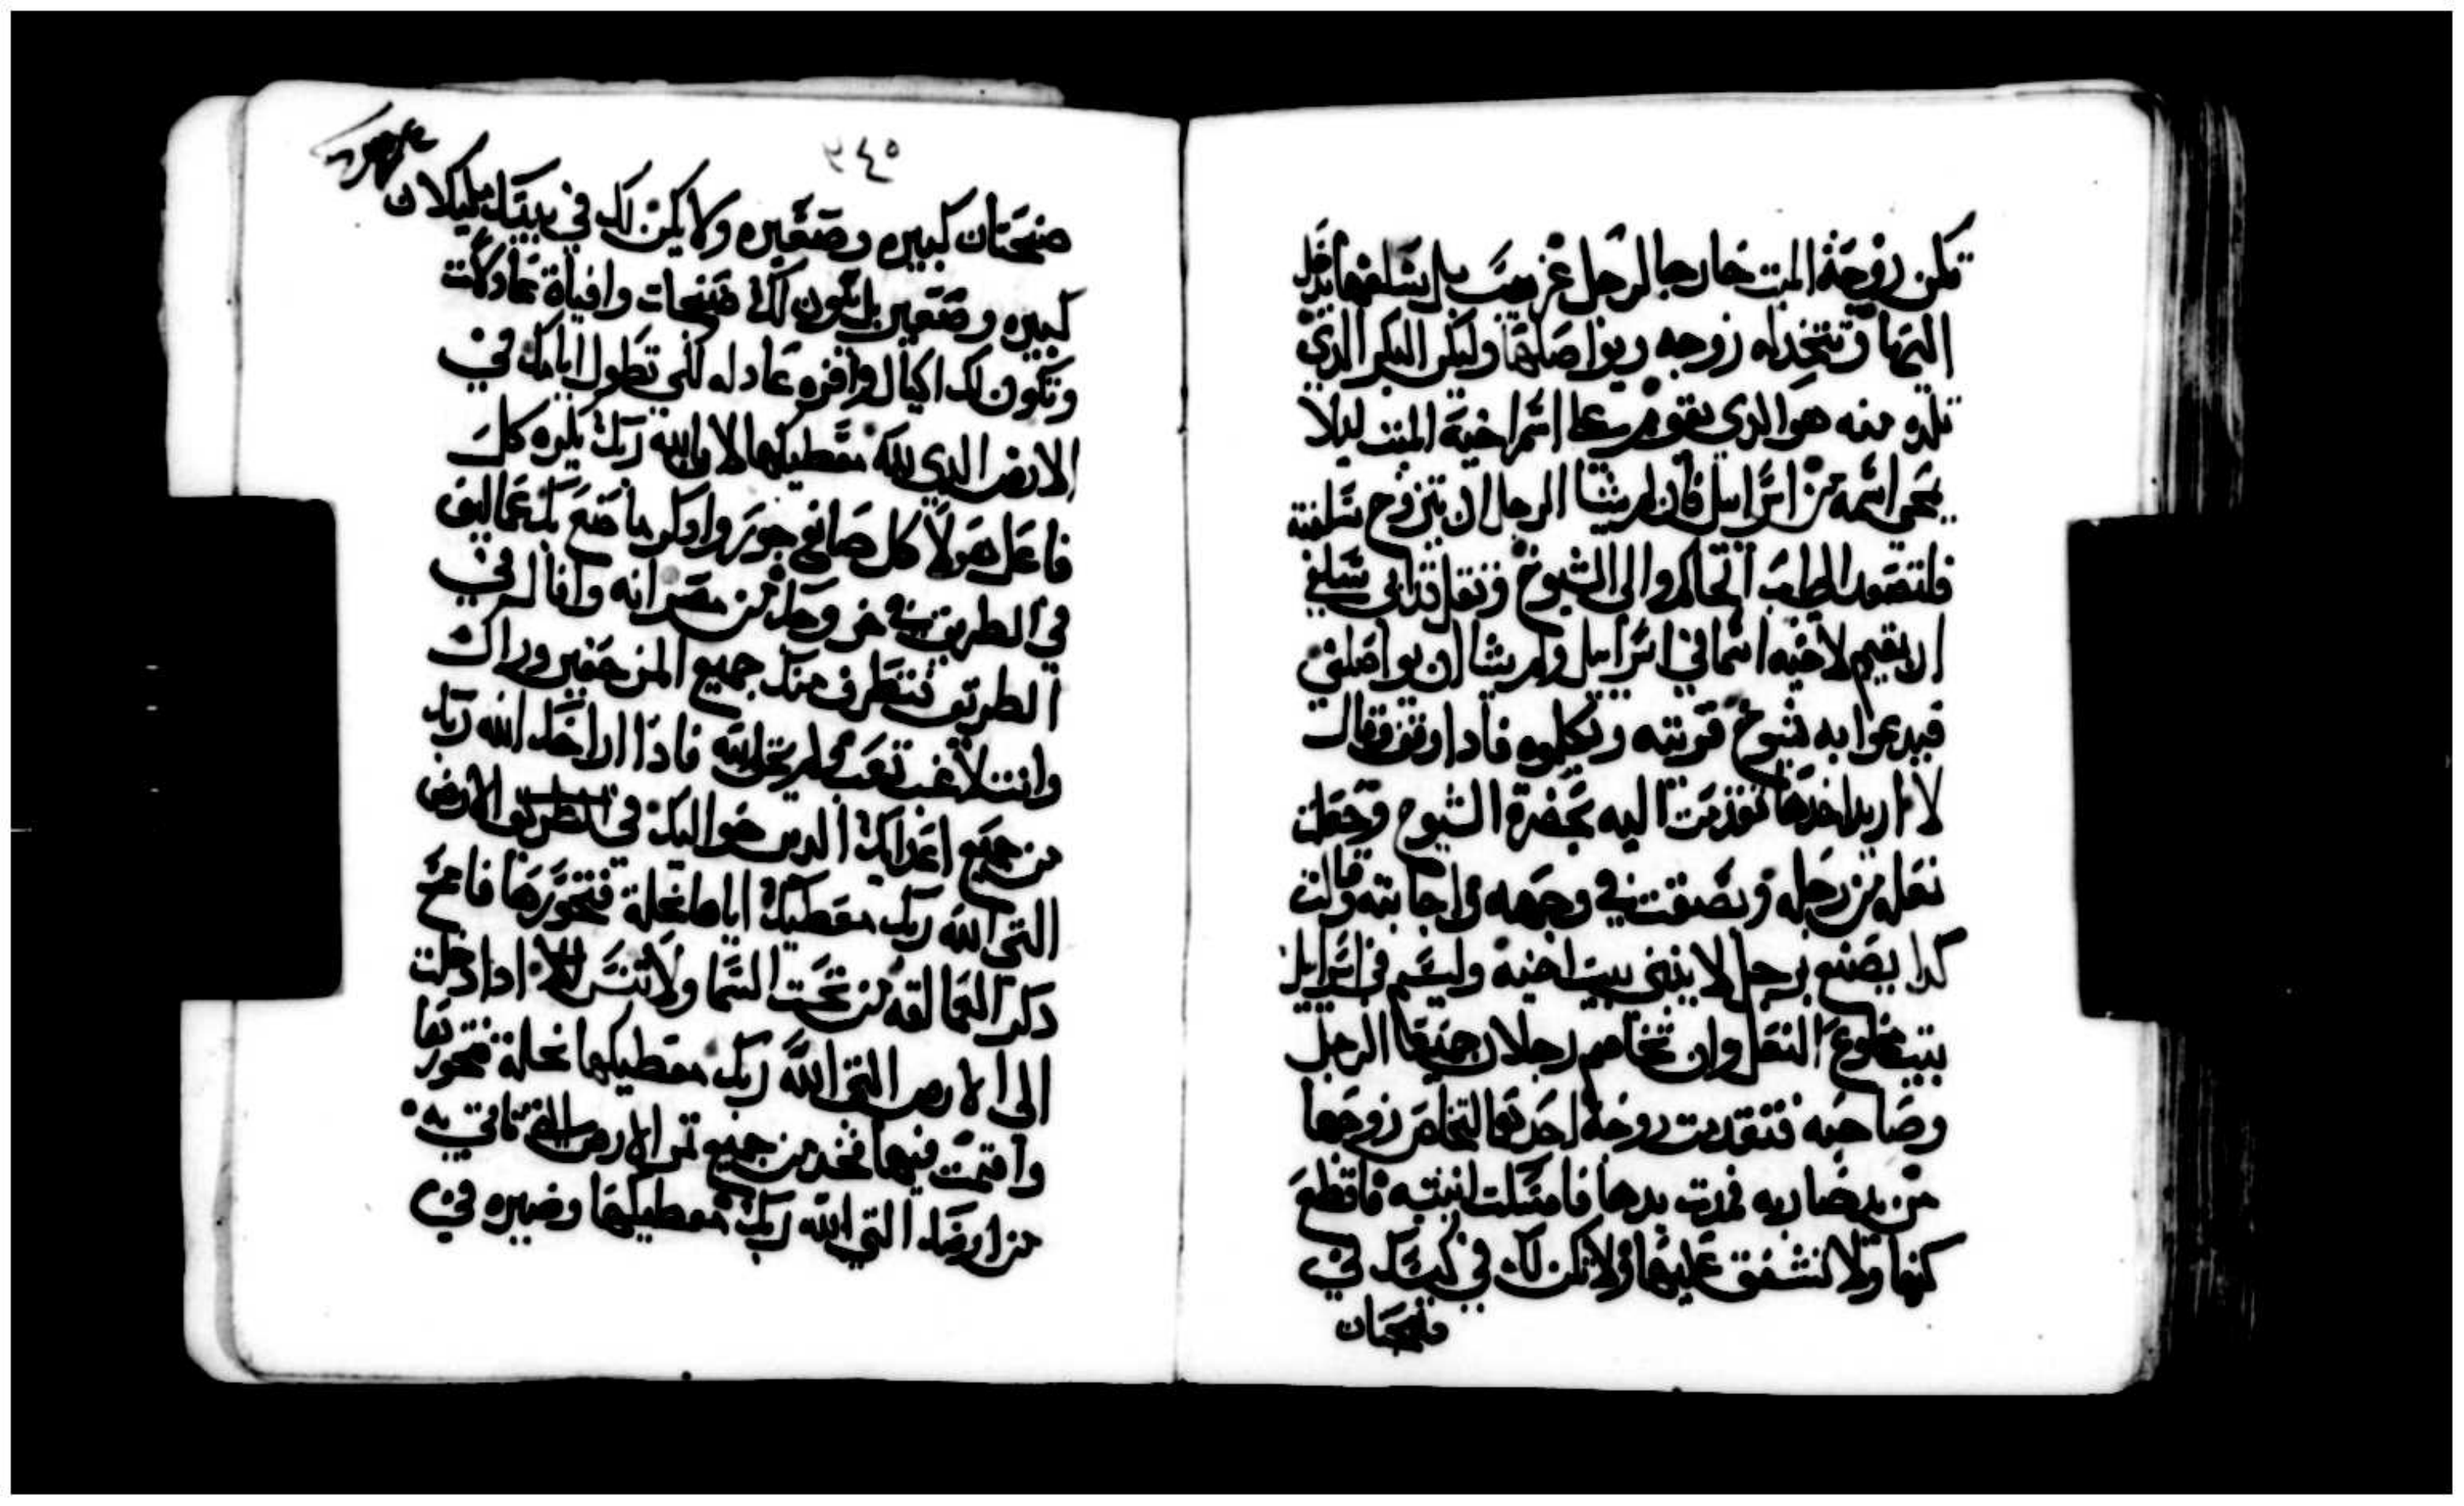 تكن زوجة الميت خارجا لرجل غريب بل سلفها يدخل
اليها وتتخذ له زوجه ويواصلها وليكن البكر الذي
تلده منه هو الذي يقوم على اسم اخيه الميت ليلا
يمحى اسمه من اسراييل فان لم يشا الرجل ان يتزوج سلفته
فلتصعد الى باب الحاكم والى الشيوخ وتقل قد ابى سلفي
ان يقيم لاخيه اسما في اسراييل ولم يشا ان يواصلني
فيدعوا به شيوخ قريته ويكلموه فاذا وقف وقال
لا اريد اخذها تقدمت اليه بحضرة الشيوخ وخلعت
نعله من رجله وبصقت في وجهه واجابته وقالت
كدا يصنع برجل لا يبني بيت اخيه وليسم في اسراييل
بيت مخلوع النعل وان تخاصم رجلان جميعا الرجل
وصاحبه فتقدمت زوجة احدهما لتخلص زوجها
من يد ضاربه فمدت يدها فامسكت انثيته فاقطع
كفها ولا تشفق عليها ولا يكن لك في كيسك في
صنجتان
٢٤٥
صنجتان كبيره وصغيره ولا يكن لك في بيتك مكيلان
كبيره وصغير بل تكون لك صنجات وافياة عادلات
وتكون لك اكيال وافره عادله لكي تطول ايامك في
الارض الدي الله معطيكها لان الله ربك يكره كل
فاعل هولا كل صانع جور وادكر ما صنع بك عماليق
في الطريق في خروجك من مصر انه وافاك في
الطريق فتطرف منك جميع المزحفين وراك
وانت لاغب تعب ولم يخف الله فادا اراحك الله ربك
من جميع اعدايك الدين حواليك في الارض
التي الله ربك معطيك اياها نحلة فتحوزها فامح
دكر العمالقه من تحت السما ولا تنس ادا دخلت
الى الارض التي الله ربك معطيكها نحلة فتحوزها
واقمت فيها فخد من جميع ثمر الارض التي تاتي به
من ارضك التي الله ربك معطيكها وصيره في